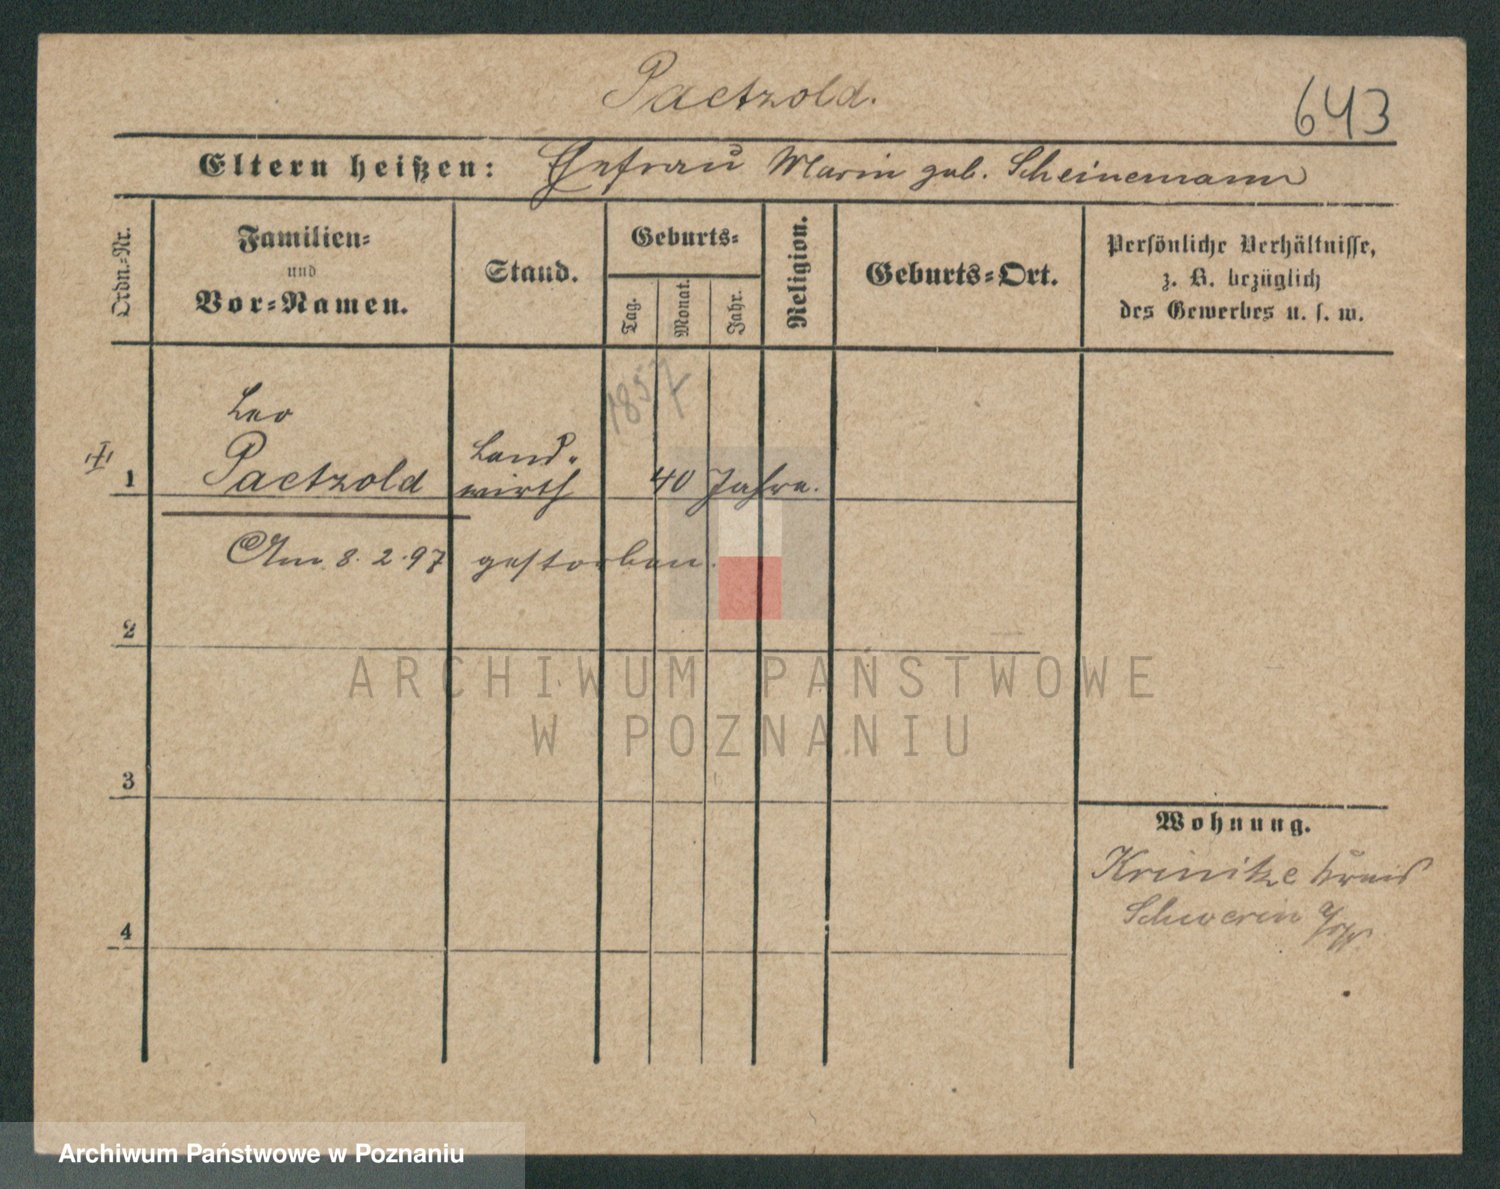 Paetzold.
643
Eltern heißen: Ehefrau Marie geb. Scheinemann
Ordn.-Nr.
Familien-
und
Vor-Namen.
Stand.
Geburts-
Tag.
Monat.
Jahr.
Religion.
Geburts-Ort.
Persönliche Verhältnisse,
z. B. bezüglich
des Gewerbes u. s. w.
1857
Leo
1 Paetzold
Land-
wirth
40 Jahre.
Am 8.2.97 gestorben.
2
ARCHIWUM PAŃSTWOWE
W POZNANIU
3
Wohnung.
Krinitze Kreis
Schwerin
4
Archiwum Państwowe w Poznaniu